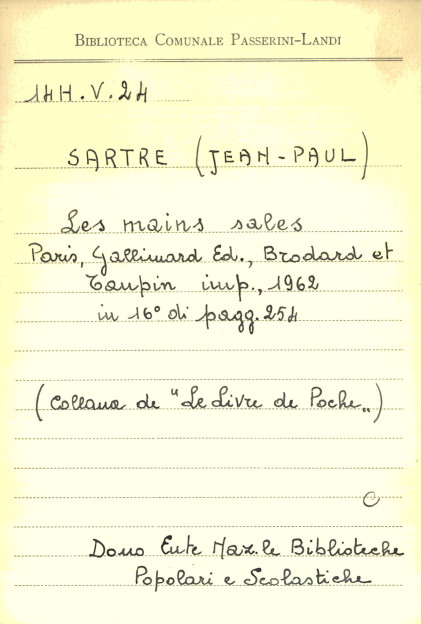 BIBLIOTECA COMUNALE PASSERINI-LANDI
14H.V.24
SARTRE (JEAN-PAUL)
Les mains sales
Paris, Gallimard Ed., Brodard et
Taupin imp., 1962
in 16° di pagg. 254
(Collana de "Le Livre de Poche„)
C
Dono Ente Naz.le Biblioteche
Popolari e Scolastiche